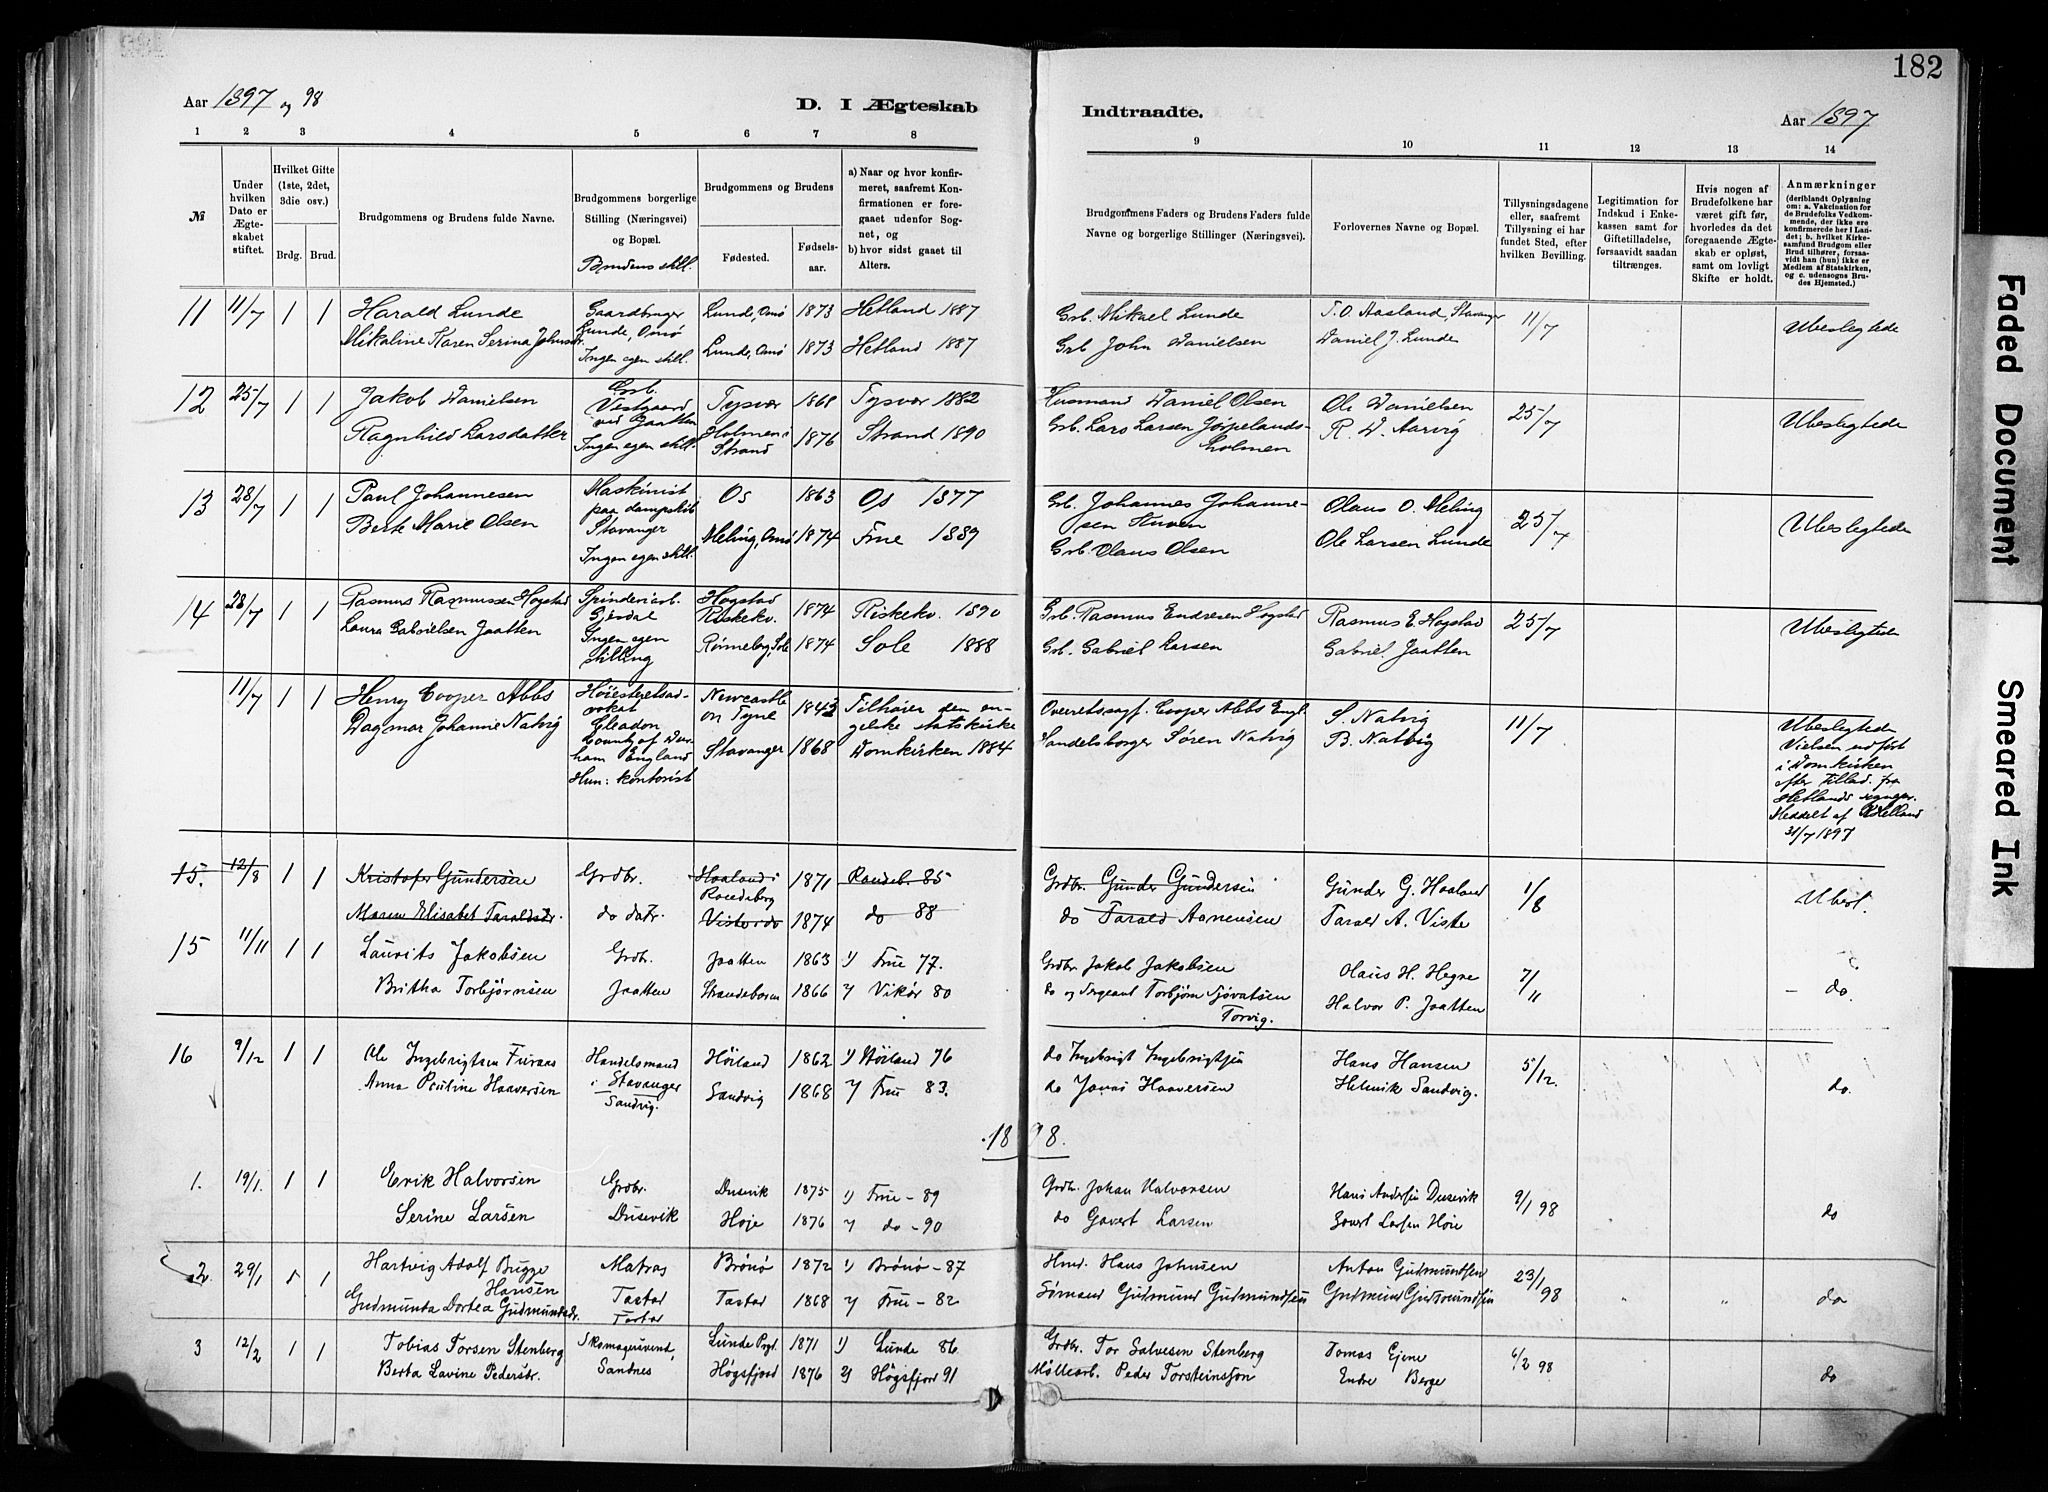 182
Aar 1897 og 98
D. I Ægteskab
Indtraadte.
Aar 1897
1 2 3 4 5 6 7 8
9 10 11 12 13 14
№
Under hvilken Dato er Ægteskabet stiftet.
Hvilket Gifte (1ste, 2det, 3die osv.)
Brdg. Brud.
Brudgommens og Brudens fulde Navne.
Brudgommens borgerlige Stilling (Næringsvei) og Bopæl.
Brudens still.
Brudgommens og Brudens
Fødested.
Fødselsaar.
a) Naar og hvor konfirmeret, saafremt Konfirmationen er foregaaet udenfor Sognet, og
b) hvor sidst gaaet til Alters.
Brudgommens Faders og Brudens Faders fulde Navne og borgerlige Stillinger (Næringsvei).
Forlovernes Navne og Bopæl.
Tillysningsdagene eller, saafremt Tillysning ei har fundet Sted, efter hvilken Bevilling.
Legitimation for Indskud i Enkekassen samt for Giftetilladelse, forsaavidt saadan tiltrænges.
Hvis nogen af Brudefolkene har været gift før, hvorledes da det foregaaende Ægteskab er opløst, samt om lovligt Skifte er holdt.
Anmærkninger
(deriblandt Oplysning om: a. Vakcination for de Brudefolks Vedkommende, der ikke ere konfirmerede her i Landet; b. hvilket Kirkesamfund Brudgom eller Brud tilhører, forsaavidt han (hun) ikke er Medlem af Statskirken, og c. udensogns Brudes Hjemsted.)
11 11/7 1 1 Harald Lunde Gaardbruger Lunde, Omø 1873 Hetland 1887 Grb. Mikael Lunde T. O. Aasland, Stavanger 11/7 Ubeslegtede
Mikaline Karen Serina Johnsdr. Lunde, Omø Ingen egen still. Lunde, Omø 1873 Hetland 1887 Grb John Danielsen Daniel J. Lunde
12 25/7 1 1 Jakob Danielsen Grb. Vestgaard ved Jaatten Tysvær 1868 Tysvær 1882 Husmand Daniel Olsen Ole Danielsen 25/7 Ubeslegtede
Ragnhild Larsdatter Ingen egen still. Holmen i Strand 1876 Strand 1890 Grb. Lars Larsen Jøspelandsholmen R. D. Aarvig
13 28/7 1 1 Paul Johannesen Maskinist paa dampskib Stavanger Os 1863 Os 1877 Grb. Johannes Johannesen Olaus O. Meling 25/7 Ubeslegtede
Berte Marie Olsen Ingen egen still. Meling, Omø 1874 Frue 1889 Grb. Olaus Olsen Ole Larsen Lunde
14 28/7 1 1 Rasmus Rasmussen Hogstad Spinderiarb. Gjesdal Hogstad Riskekv. 1874 Riskekv. 1890 Grb. Rasmus Endresen Hogstad Rasmus E. Hogstad 25/7 Ubeslegtede
Laura Gabrielsen Jaatten Ingen egen stilling Rønneberg, Sole 1874 Sole 1888 Grb. Gabriel Larsen Gabriel Jaatten
11/7 1 1 Henry Cooper Abbs Høiesteretsadvokat Cleadon County of Durham England Newcastle on Tyne 1843 Tilhører den engelske statskirke Overretssagf. Cooper Abbs Engl. S. Natvig 11/7 Ubeslegtede
Dagmar Johanne Natvig Hun: kontorist Stavanger 1868 Domkirken 1884 Handelsborger Søren Natvig B. Natvig
Vielsen udført
i Domkirken
efter Tillad. fra
Hetlands sogngpr.
Meddelt af
31/7 1897
15. 12/8 1 1 Kristofer Gundersen Grdbr. Haaland i Randeberg 1871 Randeb. 85 Grdbr. Gunder Gundersen Gunder G. Haaland 1/8 Ubesl.
Maren Elisabet Taraldsdr. do datr. Viste i do 1874 do 88 do Tarald Asmensen Tarald A. Viste
15 11/11 1 1 Laurits Jakobsen Grdbr. Jaatten 1863 1) Frue 77. Grdbr. Jakob Jakobsen Olaus H. Hegre 7/11 do.
Britha Torbjørnsen Jaatten Strandebarm 1866 2) Vikør 80 do og Sergeant Torbjørn Sjøvatsen Torvig. Halvor P. Jaatten
16 9/12 1 1 Ole Ingebrigtsen Furaas Handelsmand i Stavanger Høiland 1862 1) Høiland 76 do Ingebrigt Ingebrigtsen Hans Hansen 5/12. do.
Anna Pouline Haaversen Sandvig. Sandvig 1868 2) Frue 83. do Jonas Haaversen Helmik Sandvig.
1898.
1. 19/1. 1 1 Erik Halvorsen Grdbr. Dusevik 1875 1) Frue - 89 Grdbr. Johan Halvorsen Hans Andersen Dusevik 9/1 98 do
Serine Larsen Dusevik Høje 1876 2) do - 90 do Govert Larsen Govert Larsen Høie
2. 29/1 1 1 Hartvig Adolf Bugge Hansen Matros Brönö 1872 1) Brönö - 87 Hmd. Hans Johnsen Anton Gudmundsen 23/1 98 " " do
Gudmunda Dortea Gudmundsdr. Tastad Tastad Tastad 1868 2) Frue - 82 Sømand Gudmund Gudmundsen Gudmund Gudmundsen
3 12/2 1 1 Tobias Torsen Stenberg Skomagersvend, Lunde Prgl. 1871 1) Lunde 86. Grdbr. Tor Salvesen Stenberg Tomas Ejene 6/2 98 do
Berta Lavine Pedersdr. Sandnes Høgsfjord 1876 2) Høgsfjord 91 Møllearb. Peder Torsteinsson Endre Berge
Faded Document
Smeared Ink